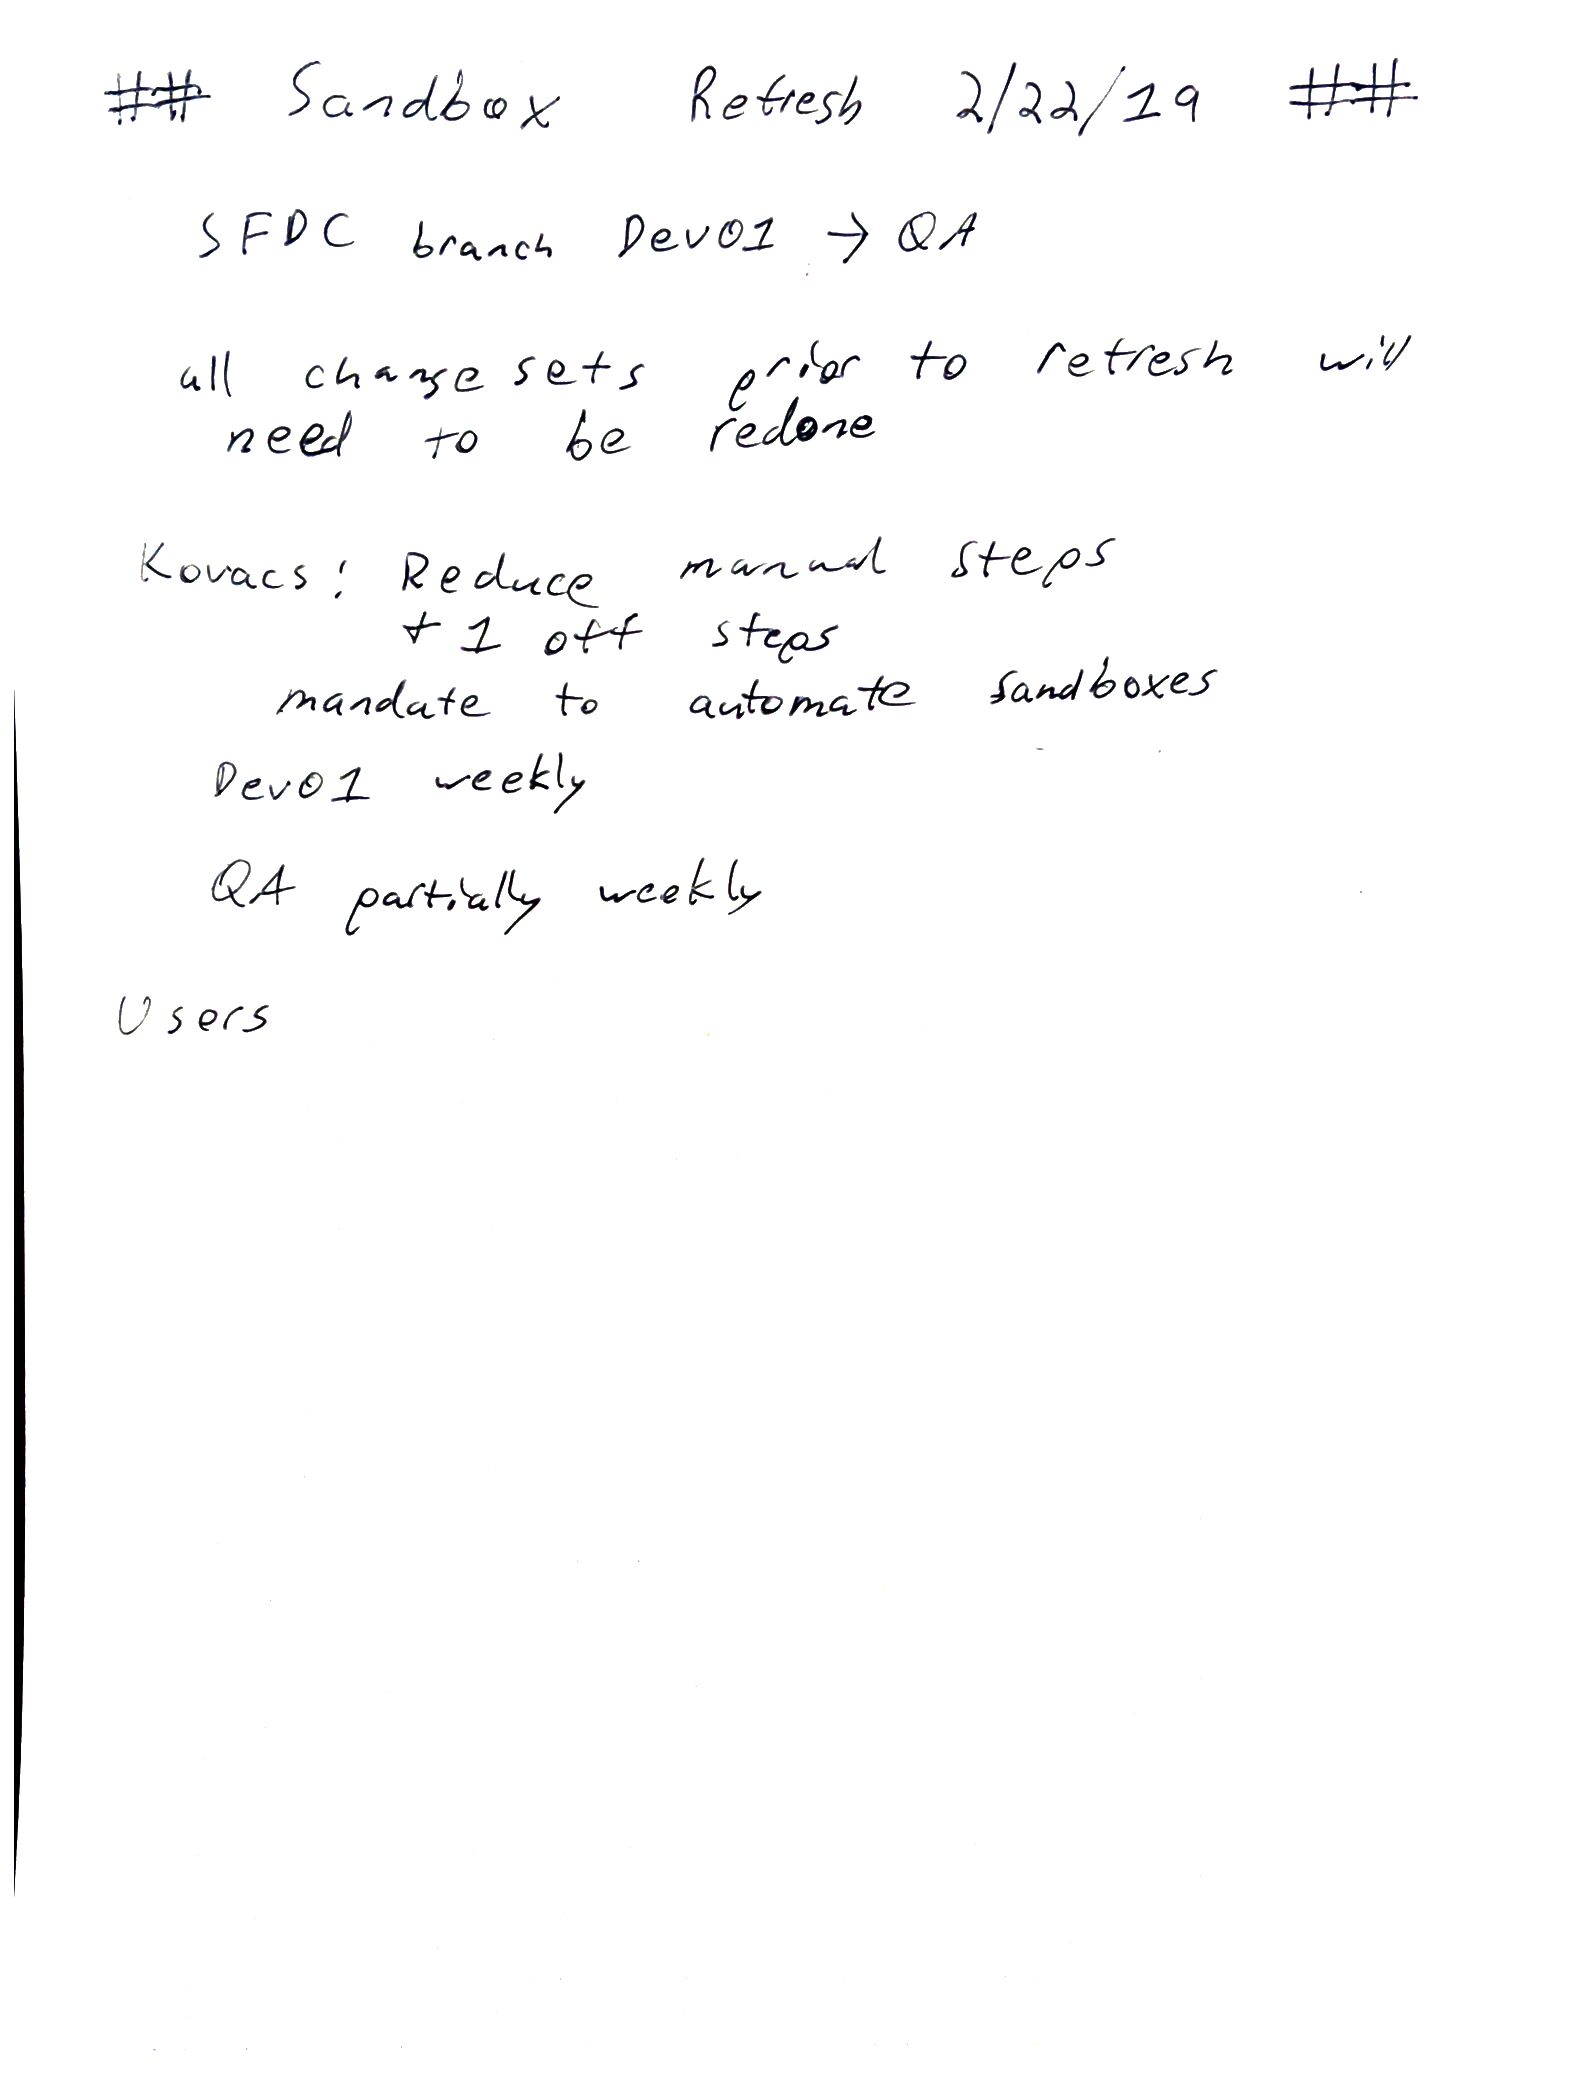 ## Sandbox Refresh 2/22/19 ##
SFDC branch Dev01 → QA
all change sets prior to refresh will
need to be redone
Kovacs: Reduce manual steps
+ 1 off steps
mandate to automate sandboxes
Dev01 weekly
QA partially weekly
Users